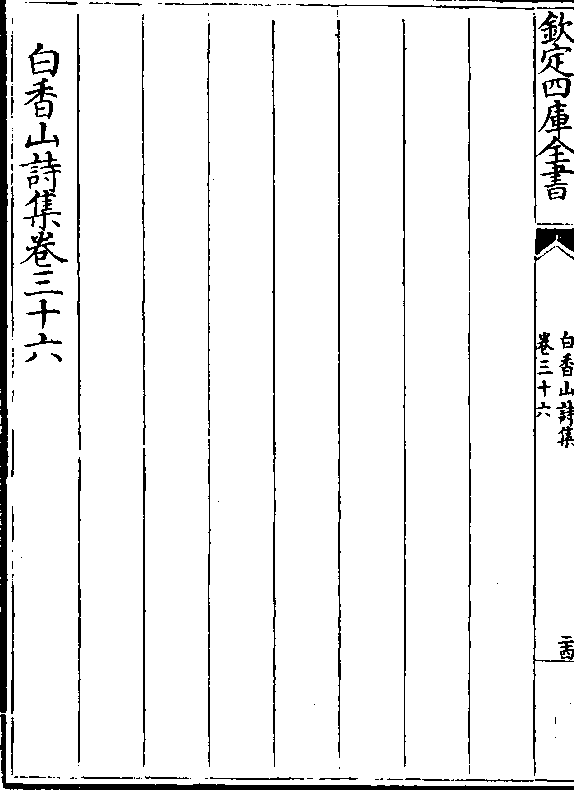 欽定四庫全書
白香山詩集
卷三十六
二十四
白香山詩集卷三十六